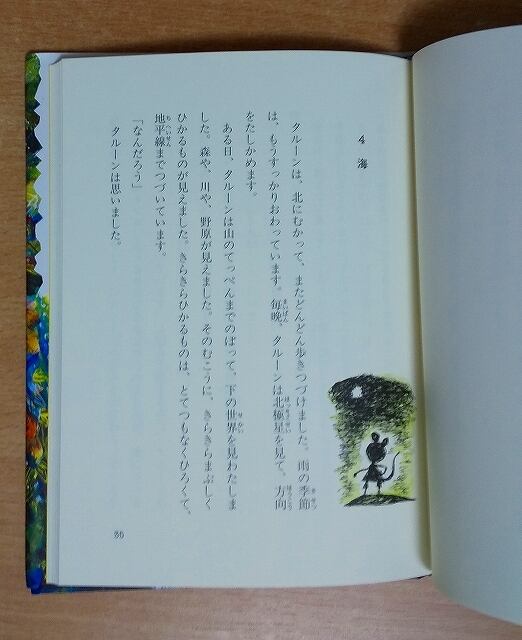 4 海
タルーンは、北にむかって、またどんどん歩きつづけました。雨の季節
は、もうすっかりおわっています。毎晩、タルーンは北極星を見て、方向
をたしかめます。
ある日、タルーンは山のてっぺんまでのぼって、下の世界を見わたしま
した。森や、川や、野原が見えました。そのむこうに、きらきらまぶしく
ひかるものが見えました。きらきらひかるものは、とてつもなくひろくて、
地平線までつづいています。
「なんだろう」
タルーンは思いました。
36